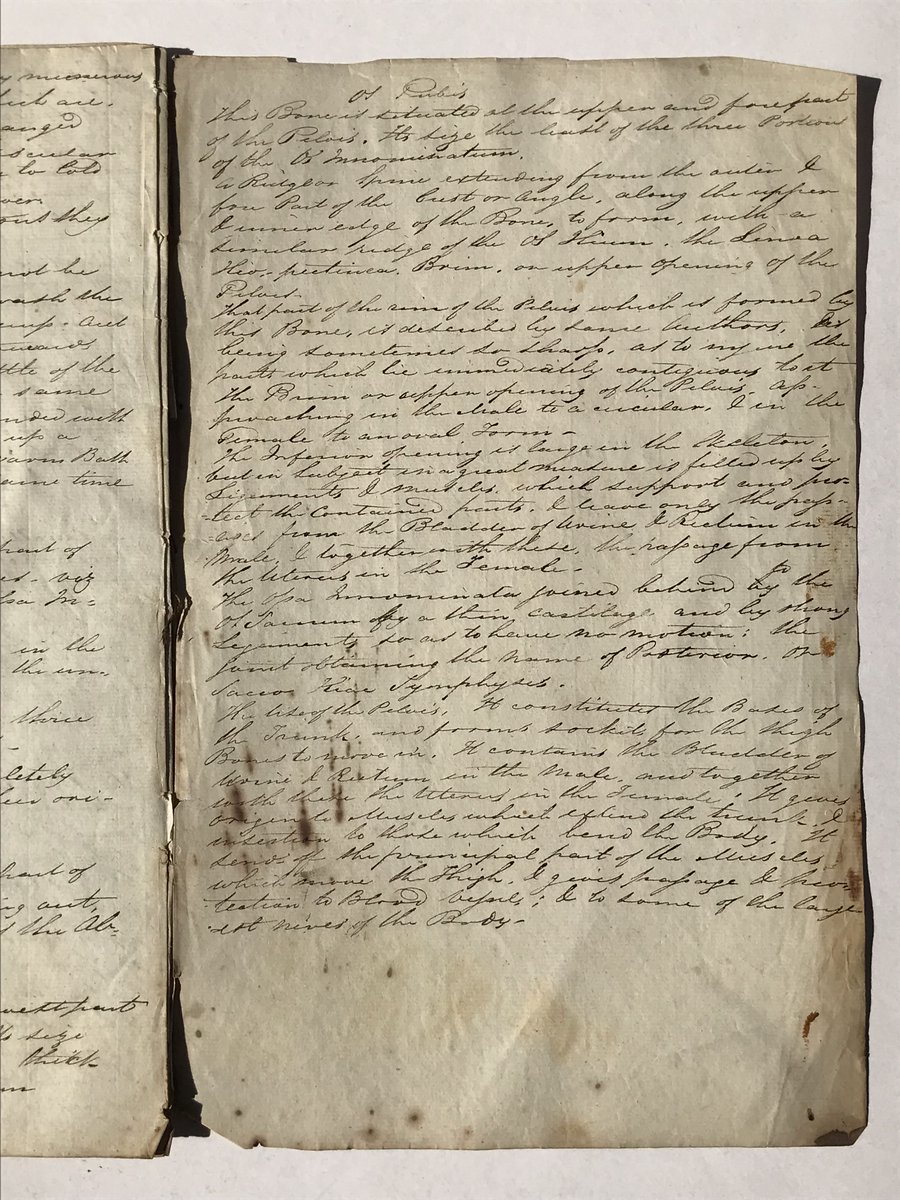 y numerous
hich are.
anged
scular
n to Cold
over
out they
not be
wash the
cup. and
wards
ttle of the
e same
nded with
up a
Warm Bath
ame time
part of
es. viz
sa In-
in the
the un-
three
letely
heir ori-
part of
ng out,
f the Ab-
west part
Its size
thick
Os Pubis
This Bone is situated at the upper and fore part
of the Pelvis. Its size the least of the three Portions
of the Os Innominatum.
A Ridge or Spine extending from the outer &
fore Part of the Crest or Angle, along the upper
& inner edge of the Bone, to form, with a
simular ridge of the Os Ilium, the Linea
Ileo-pectinea, Brim, or upper opening of the
Pelvis.
That part of the rim of the Pelvis which is formed by
this Bone, is described by some Authors, as
being sometimes so sharp, as to injure the
parts which lie immediately contiguous to it
The Brim or upper opening of the Pelvis ap-
proaching in the Male to a circular, & in the
Female to an oval Form-
The Inferior opening is large in the Skeleton,
but in Subject in a great measure is filled up by
Ligements & muscles, which support and pro-
-tect the Contained parts, & leave only the pass-
-ages from the Bladder of Urine & Rectum in the
Male, & together with these, the passage from
the Uterus in the Female-
The Ossa Innominata joined behind to the
Os Sacrum by a thin cartilage and by strong
Legiments so as to have no motion; the
joint obtaining the name of Posterior, or
Sacro Iliac Symphyses.
The Use of the Pelvis. It constitutes the Bases of
the Trunk, and forms sockits for the thigh
Bones to move in. It contains the Bladder of
Urine & Rectum in the Male, and together
with these the Uterus in the Female. It gives
origin to Muscles which extend the trunk &
insertion to those which bend the Body. It
sends off the principal part of the Muscles
which move the Thigh, & gives passage & pro-
-tection to Blood vessels; & to some of the larg-
-est nerves of the Body-